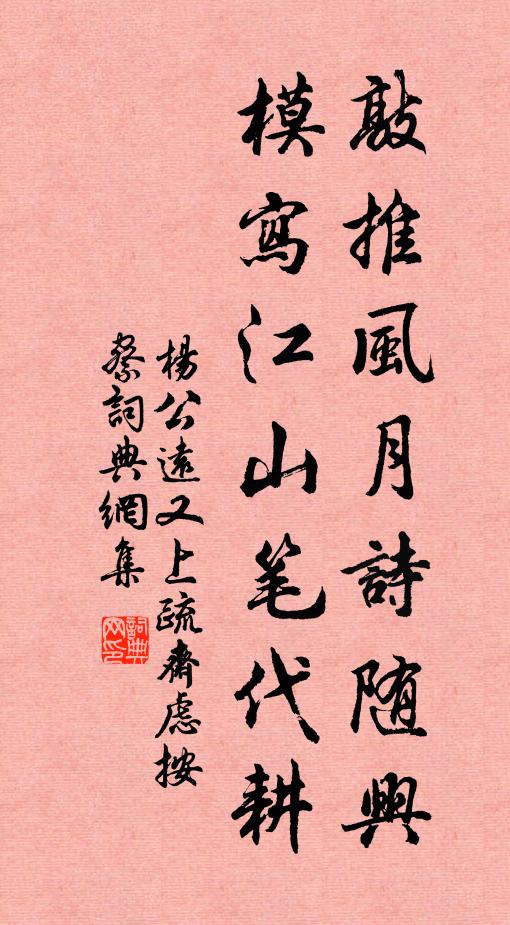 敲推風月詩随興
模寫江山笔代耕
楊公遠又上疏齋虑按
察詞典網集
詞典网印